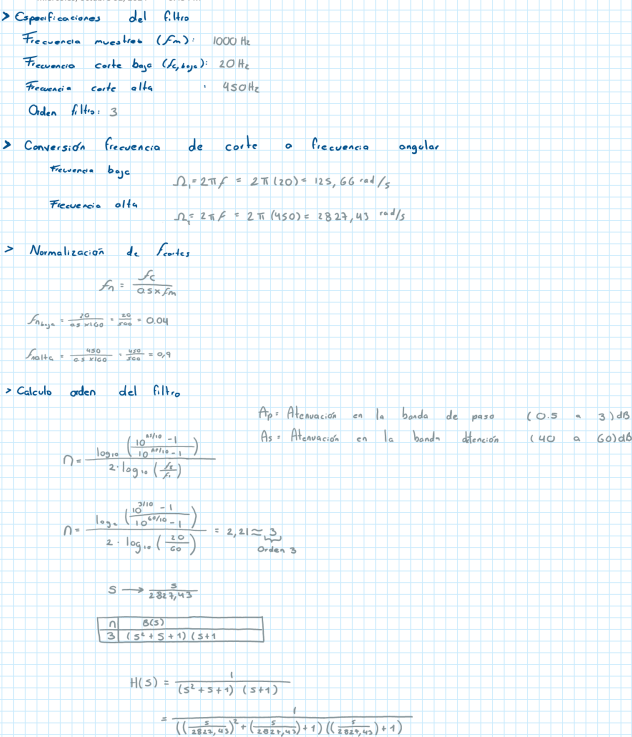 > Especificaciones del filtro
Frecuencia muestreo (fm): 1000 Hz
Frecuencia corte bajo (fc,bajo): 20 Hz
Frecuencia corte alta : 450Hz
Orden filtro: 3
> Conversión frecuencia de corte a frecuencia angular
Frecuencia baja
Ω₁ = 2πf = 2π(20) = 125,66 rad/s
Frecuencia alta
Ω₂ = 2πf = 2π(450) = 2827,43 rad/s
> Normalización de fcortes
fn = fc / 0.5×fm
fn baja = 20 / 0.5 × 1000 = 20/500 = 0.04
fn alta = 450 / 0.5 × 1000 = 450/500 = 0,9
> Calculo orden del filtro
Ap = Atenuación en la banda de paso (0.5 a 3)dB
As = Atenuación en la banda atención (40 a 60)dB
n = log₁₀ ( (10^/10 - 1) / (10^/10 - 1) ) / 2·log₁₀ ( / )
n = log₁₀ ( (10^3/10 - 1) / (10^60/10 - 1) ) / 2·log₁₀ (20/60) = 2,21 ≈ 3
Orden 3
S → s / 2827,43
n B(s)
3 (s²+s+1)(s+1
H(s) = 1 / (s²+s+1) (s+1)
= 1 / (((s/2827,43)² + (s/2827,43) + 1) ((s/2827,43) + 1)